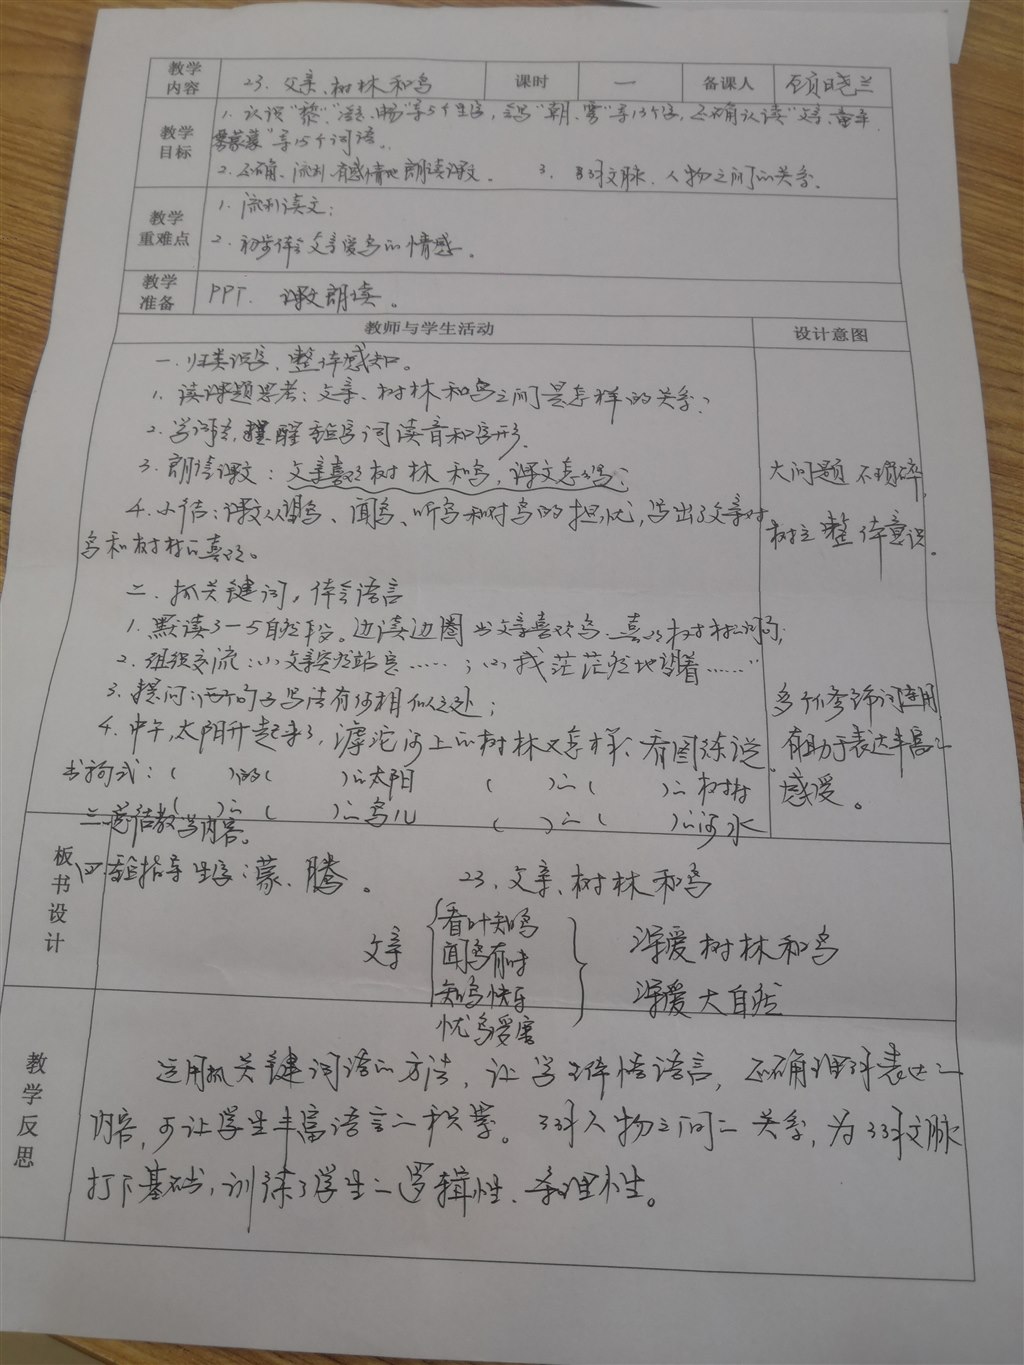 教学内容 23. 父亲、树林和鸟 课时 一 备课人 顾晓兰
教学目标 1. 认识“黎、凝、畅”等5个生字,会写“朝、雾”等13个字,正确认读“父亲、童年、
雾蒙蒙”等15个词语。
2. 正确、流利、有感情地朗读课文。 3. 文脉、人物之间的关系。
教学重难点 1. 流利读文;
2. 初步体会父亲爱鸟的情感。
教学准备 PPT. 课文朗读。
教师与学生活动 设计意图
一. 归类识字,整体感知。
1. 读课题思考:父亲、树林和鸟之间是怎样的关系?
2. 学词语,提醒 词读音和字形.
3. 朗读课文:父亲喜欢树林和鸟,课文怎么写;
4. 小结:课文从望鸟、闻鸟、听鸟和对鸟的担忧,写出了父亲对
鸟和树林的喜欢。
大问题 不琐碎,
树立整体意识。
二. 抓关键词,体会语言
1. 默读3—5自然段。边读边圈出父亲喜欢鸟、喜欢树林的词句;
2. 组织交流:(1)父亲突然站定……;(2)我茫茫然地望着……
3. 提问:两个句子写法有何相似之处;
4. 中午,太阳升起来了,滹沱河上的树林又怎样、看图练说
书句式:( )的( )的太阳 ( )的( )的树林
( )的( )的鸟儿 ( )的( )的河水
多个修饰词连用,
有助于表达丰富的
感受。
三. 总结教学内容。
四. 指导生字:蒙、腾。
板书设计
23. 父亲、树林和鸟
父亲
看叶知鸟
闻鸟有时
知鸟快乐
忧鸟受害
深爱树林和鸟
深爱大自然
教学反思
运用抓关键词语的方法,让学生体悟语言,正确理解表达的
内容,可让学生丰富语言的积累。理解人物之间的关系,为理解文脉
打下基础,训练了学生的逻辑性、条理性。